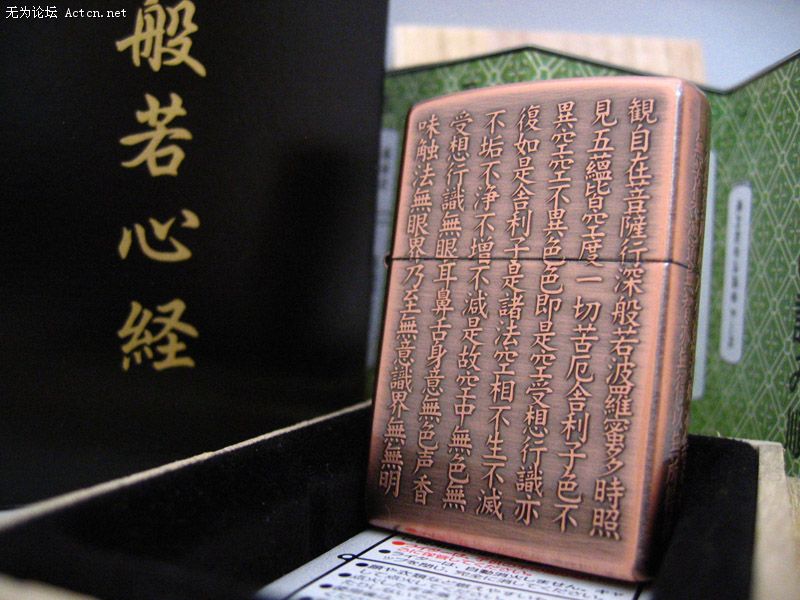 无为论坛 Actcn.net
般若心経
観自在菩薩行深般若波羅蜜多時照
見五蘊皆空度一切苦厄舎利子色不
異空空不異色色即是空受想行識亦
復如是舎利子是諸法空相不生不滅
不垢不浄不増不減是故空中無色無
受想行識無眼耳鼻舌身意無色声香
味触法無眼界乃至無意識界無無明
●ライターは、自動消火しません。キャ
ップを閉じ、完全に消